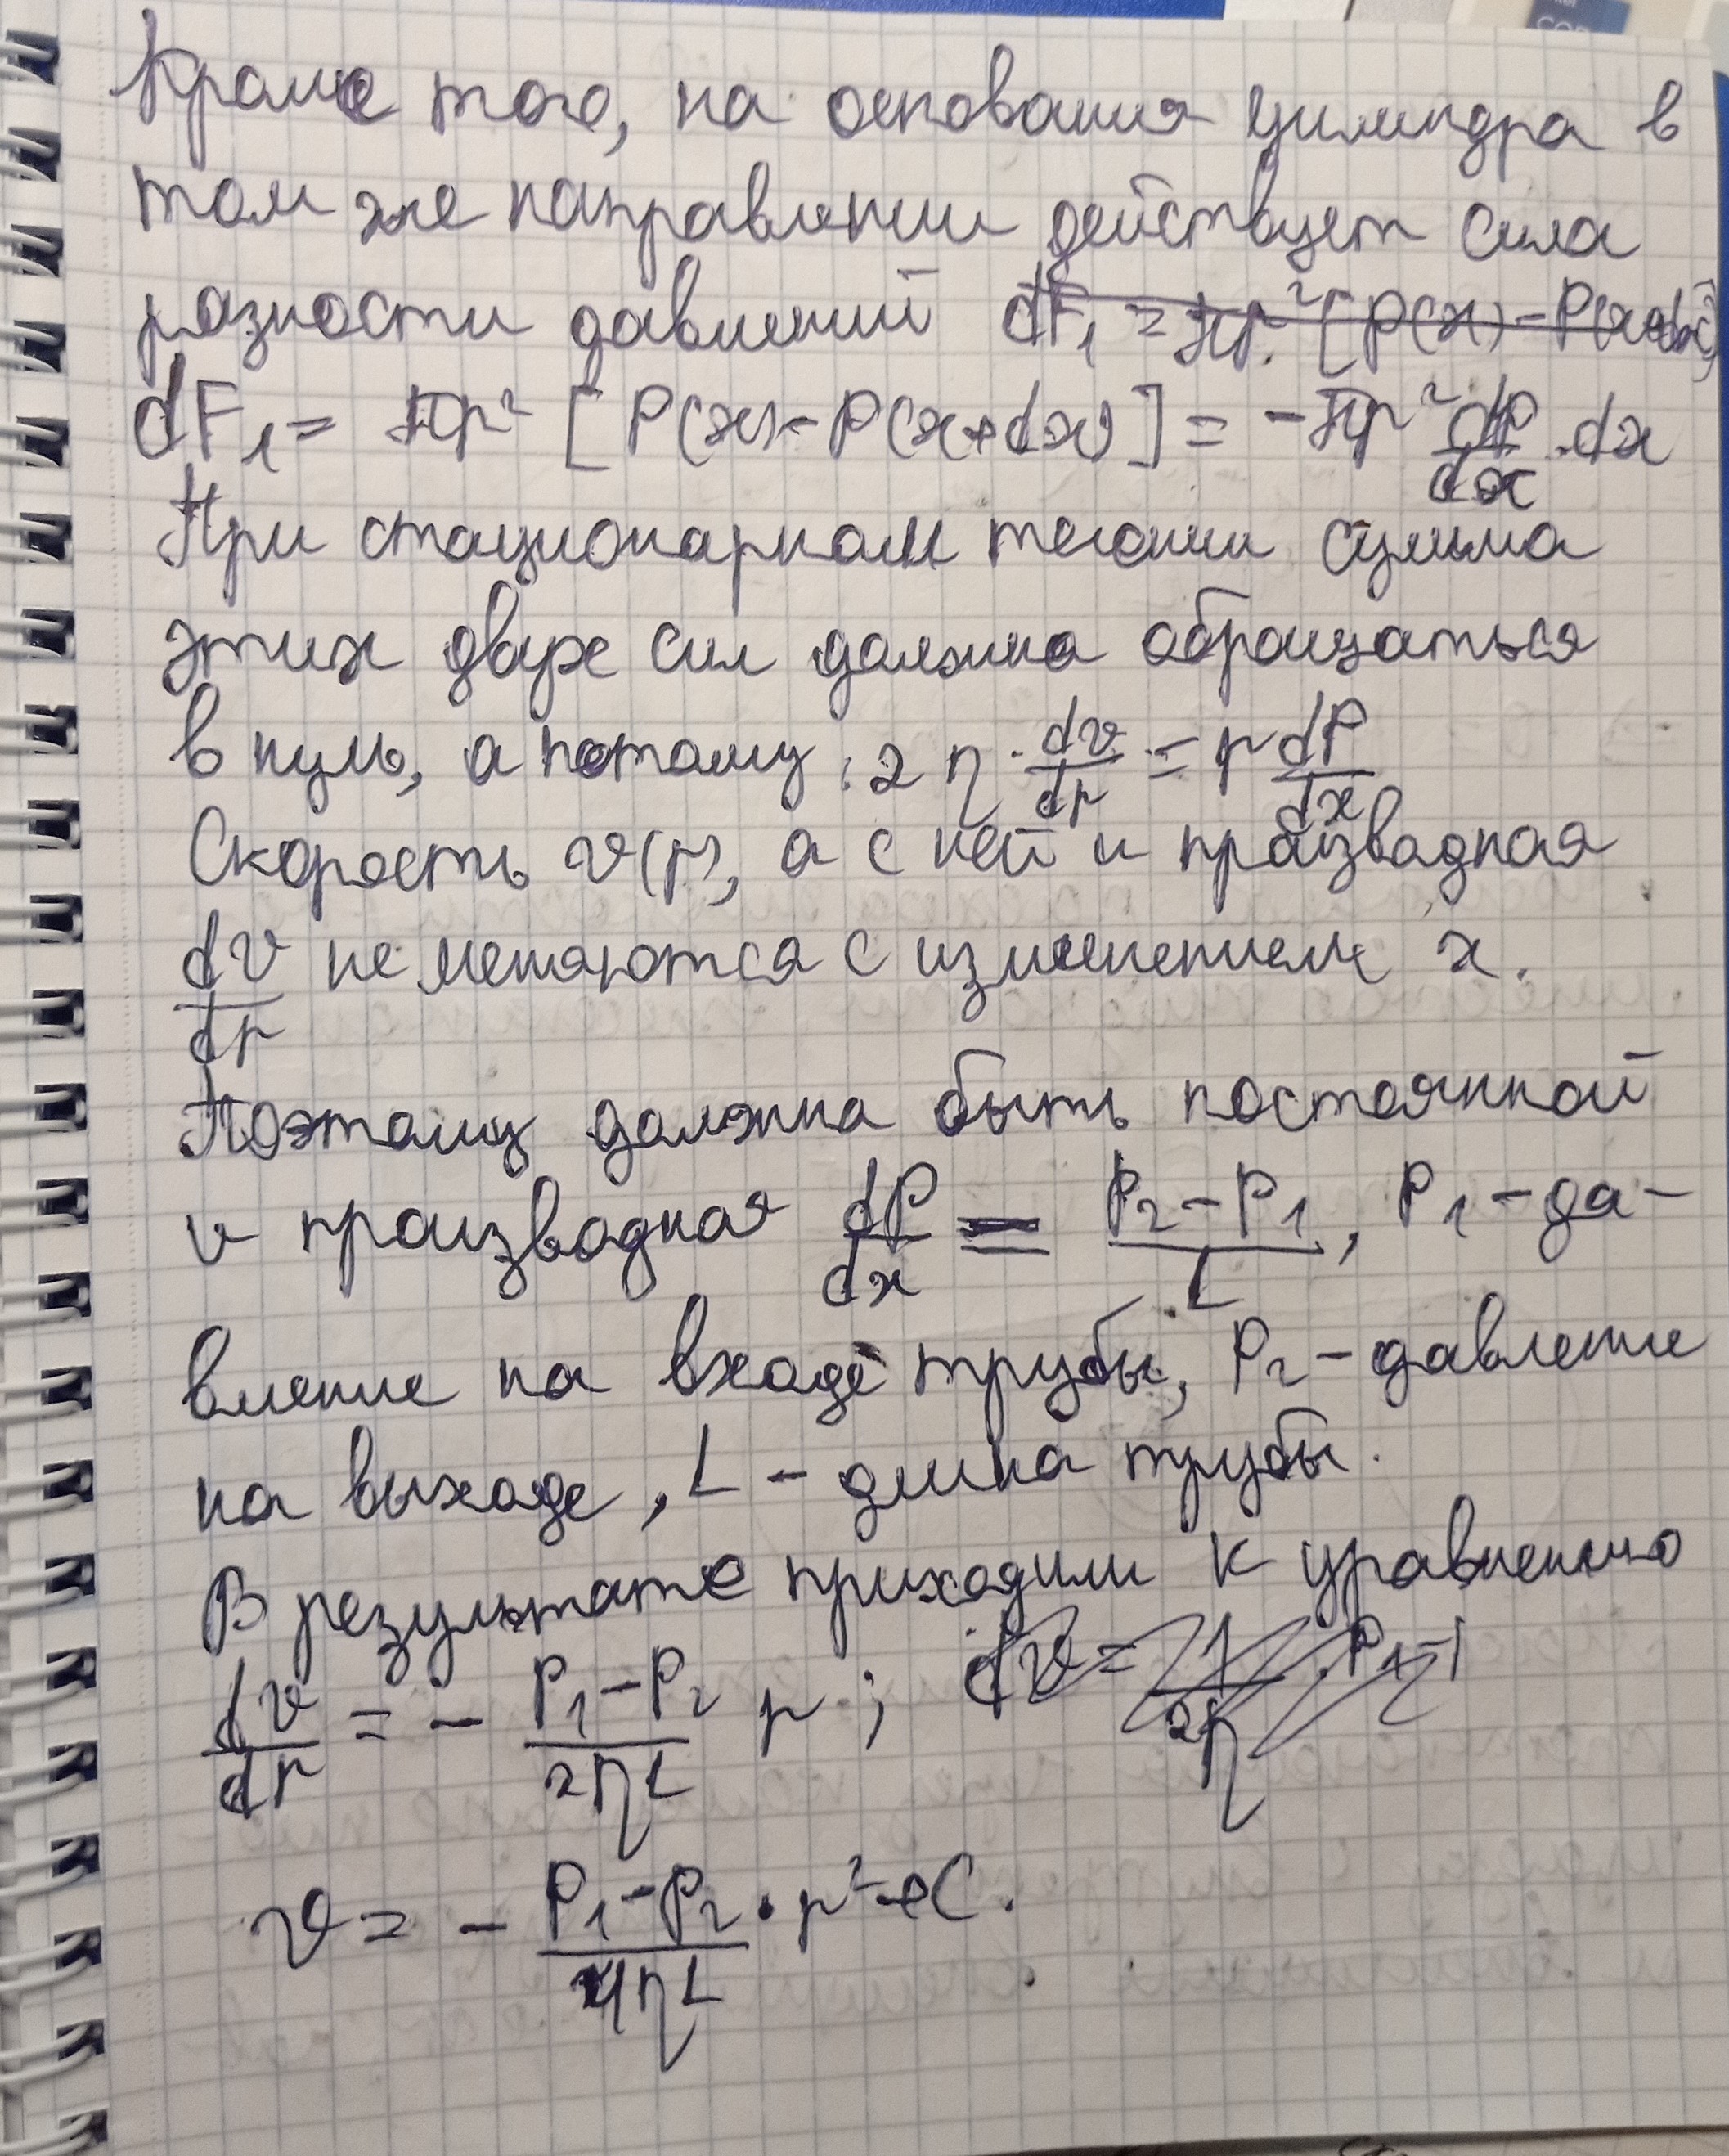 Кроме того, на основания цилиндра в
том же направлении действует сила
разности давлений dF₁ = πr² [P(x) - P(x+dx)]
dF₁ = πr² [P(x) - P(x+dx)] = -πr² dP/dx · dx
При стационарном течении сумма
этих двух сил должна обращаться
в нуль, а потому: 2η · dv/dr = r dP/dx
Скорость v(r), а с ней и производная
dv/dr не меняются с изменением x.
Поэтому должна быть постоянной
и производная dP/dx = (P₂ - P₁)/L, P₁ - да-
вление на входе трубы, P₂ - давление
на выходе, L - длина трубы.
В результате приходим к уравнению
dv/dr = - (P₁ - P₂)/(2ηL) r; dv = 1/(2η) · P₁ -
v = - (P₁ - P₂)/(4ηL) · r² + C.